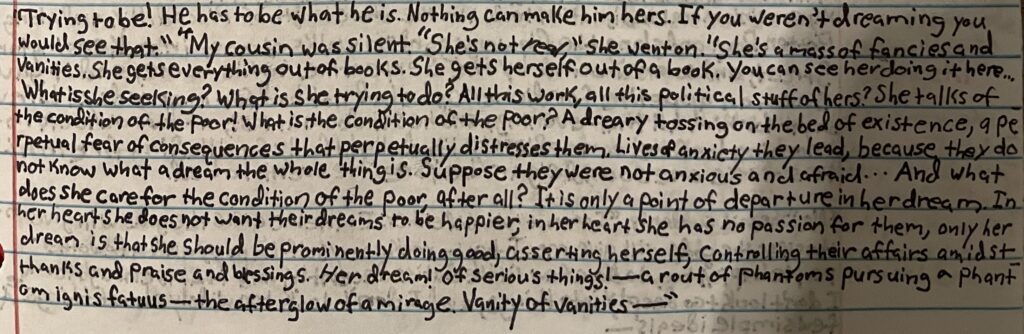 "Trying to be! He has to be what he is. Nothing can make him hers. If you weren't dreaming you
would see that." "My cousin was silent. "She's not real" she went on. "She's a mass of fancies and
vanities. She gets everything out of books. She gets herself out of a book. You can see her doing it here...
What is she seeking? What is she trying to do? All this work, all this political stuff of hers? She talks of
the condition of the poor! What is the condition of the poor? A dreary tossing on the bed of existence, a pe
rpetual fear of consequences that perpetually distresses them. Lives of anxiety they lead, because they do
not know what a dream the whole thing is. Suppose they were not anxious and afraid... And what
does she care for the condition of the poor, after all? It is only a point of departure in her dream. In
her heart she does not want their dreams to be happier, in her heart she has no passion for them, only her
dream is that she should be prominently doing good, asserting herself, controlling their affairs amidst
thanks and praise and blessings. Her dream! Of serious things!—a rout of phantoms pursuing a phant
om ignis fatuus—the afterglow of a mirage. Vanity of vanities—"